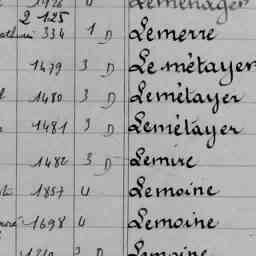 Leménager
2 125
334 1 D Lemerre
1479 3 D Le métayer
1480 3 D Lemétayer
1481 3 D Lemétayer
1482 3 D Lemire
1857 4 Lemoine
1698 4 Lemoine
D Lemoine